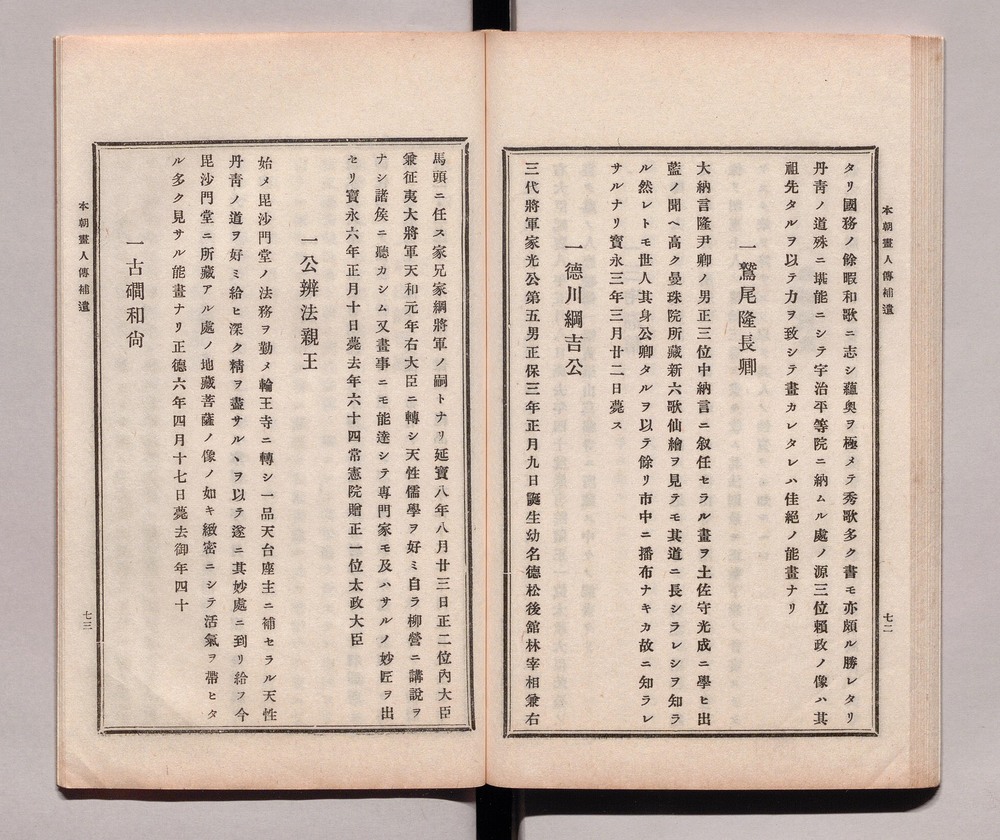 本朝畫人傳補遺
七二
タリ國務ノ餘暇和歌ニ志シ蘊奧ヲ極メテ秀歌多ク書モ亦頗ル勝レタリ
丹靑ノ道殊ニ堪能ニシテ宇治平等院ニ納ムル處ノ源三位賴政ノ像ハ其
祖先タルヲ以テ力ヲ致シテ畫カレタレハ佳絕ノ能畫ナリ
一鷲尾隆長卿
大納言隆尹卿ノ男正三位中納言ニ叙任セラル畫ヲ土佐守光成ニ學ヒ出
藍ノ聞ヘ高ク曼珠院所藏新六歌仙繪ヲ見テモ其道ニ長シラレシヲ知ラ
ル然レトモ世人其身公卿タルヲ以テ餘リ市中ニ播布ナキカ故ニ知ラレ
サルナリ寳永三年三月廿二日薨ス
一德川綱吉公
三代將軍家光公第五男正保三年正月九日誕生幼名德松後舘林宰相兼右
馬頭ニ任ス家兄家綱將軍ノ嗣トナリ延寳八年八月廿三日正二位內大臣
兼征夷大將軍天和元年右大臣ニ轉シ天性儒學ヲ好ミ自ラ柳營ニ講說ヲ
ナシ諸侯ニ聽カシム又畫事ニモ能達シテ專門家モ及ハサルノ妙匠ヲ出
セリ寳永六年正月十日薨去年六十四常憲院贈正一位太政大臣
一公辨法親王
始メ毘沙門堂ノ法務ヲ勤メ輪王寺ニ轉シ一品天台座主ニ補セラル天性
丹靑ノ道ヲ好ミ給ヒ深ク精ヲ盡サルヽヲ以テ遂ニ其妙處ニ到リ給フ今
毘沙門堂ニ所藏アル處ノ地藏菩薩ノ像ノ如キ緻密ニシテ活氣ヲ帶ヒタ
ル多ク見サル能畫ナリ正德六年四月十七日薨去御年四十
一古磵和尙
本朝畫人傳補遺
七三